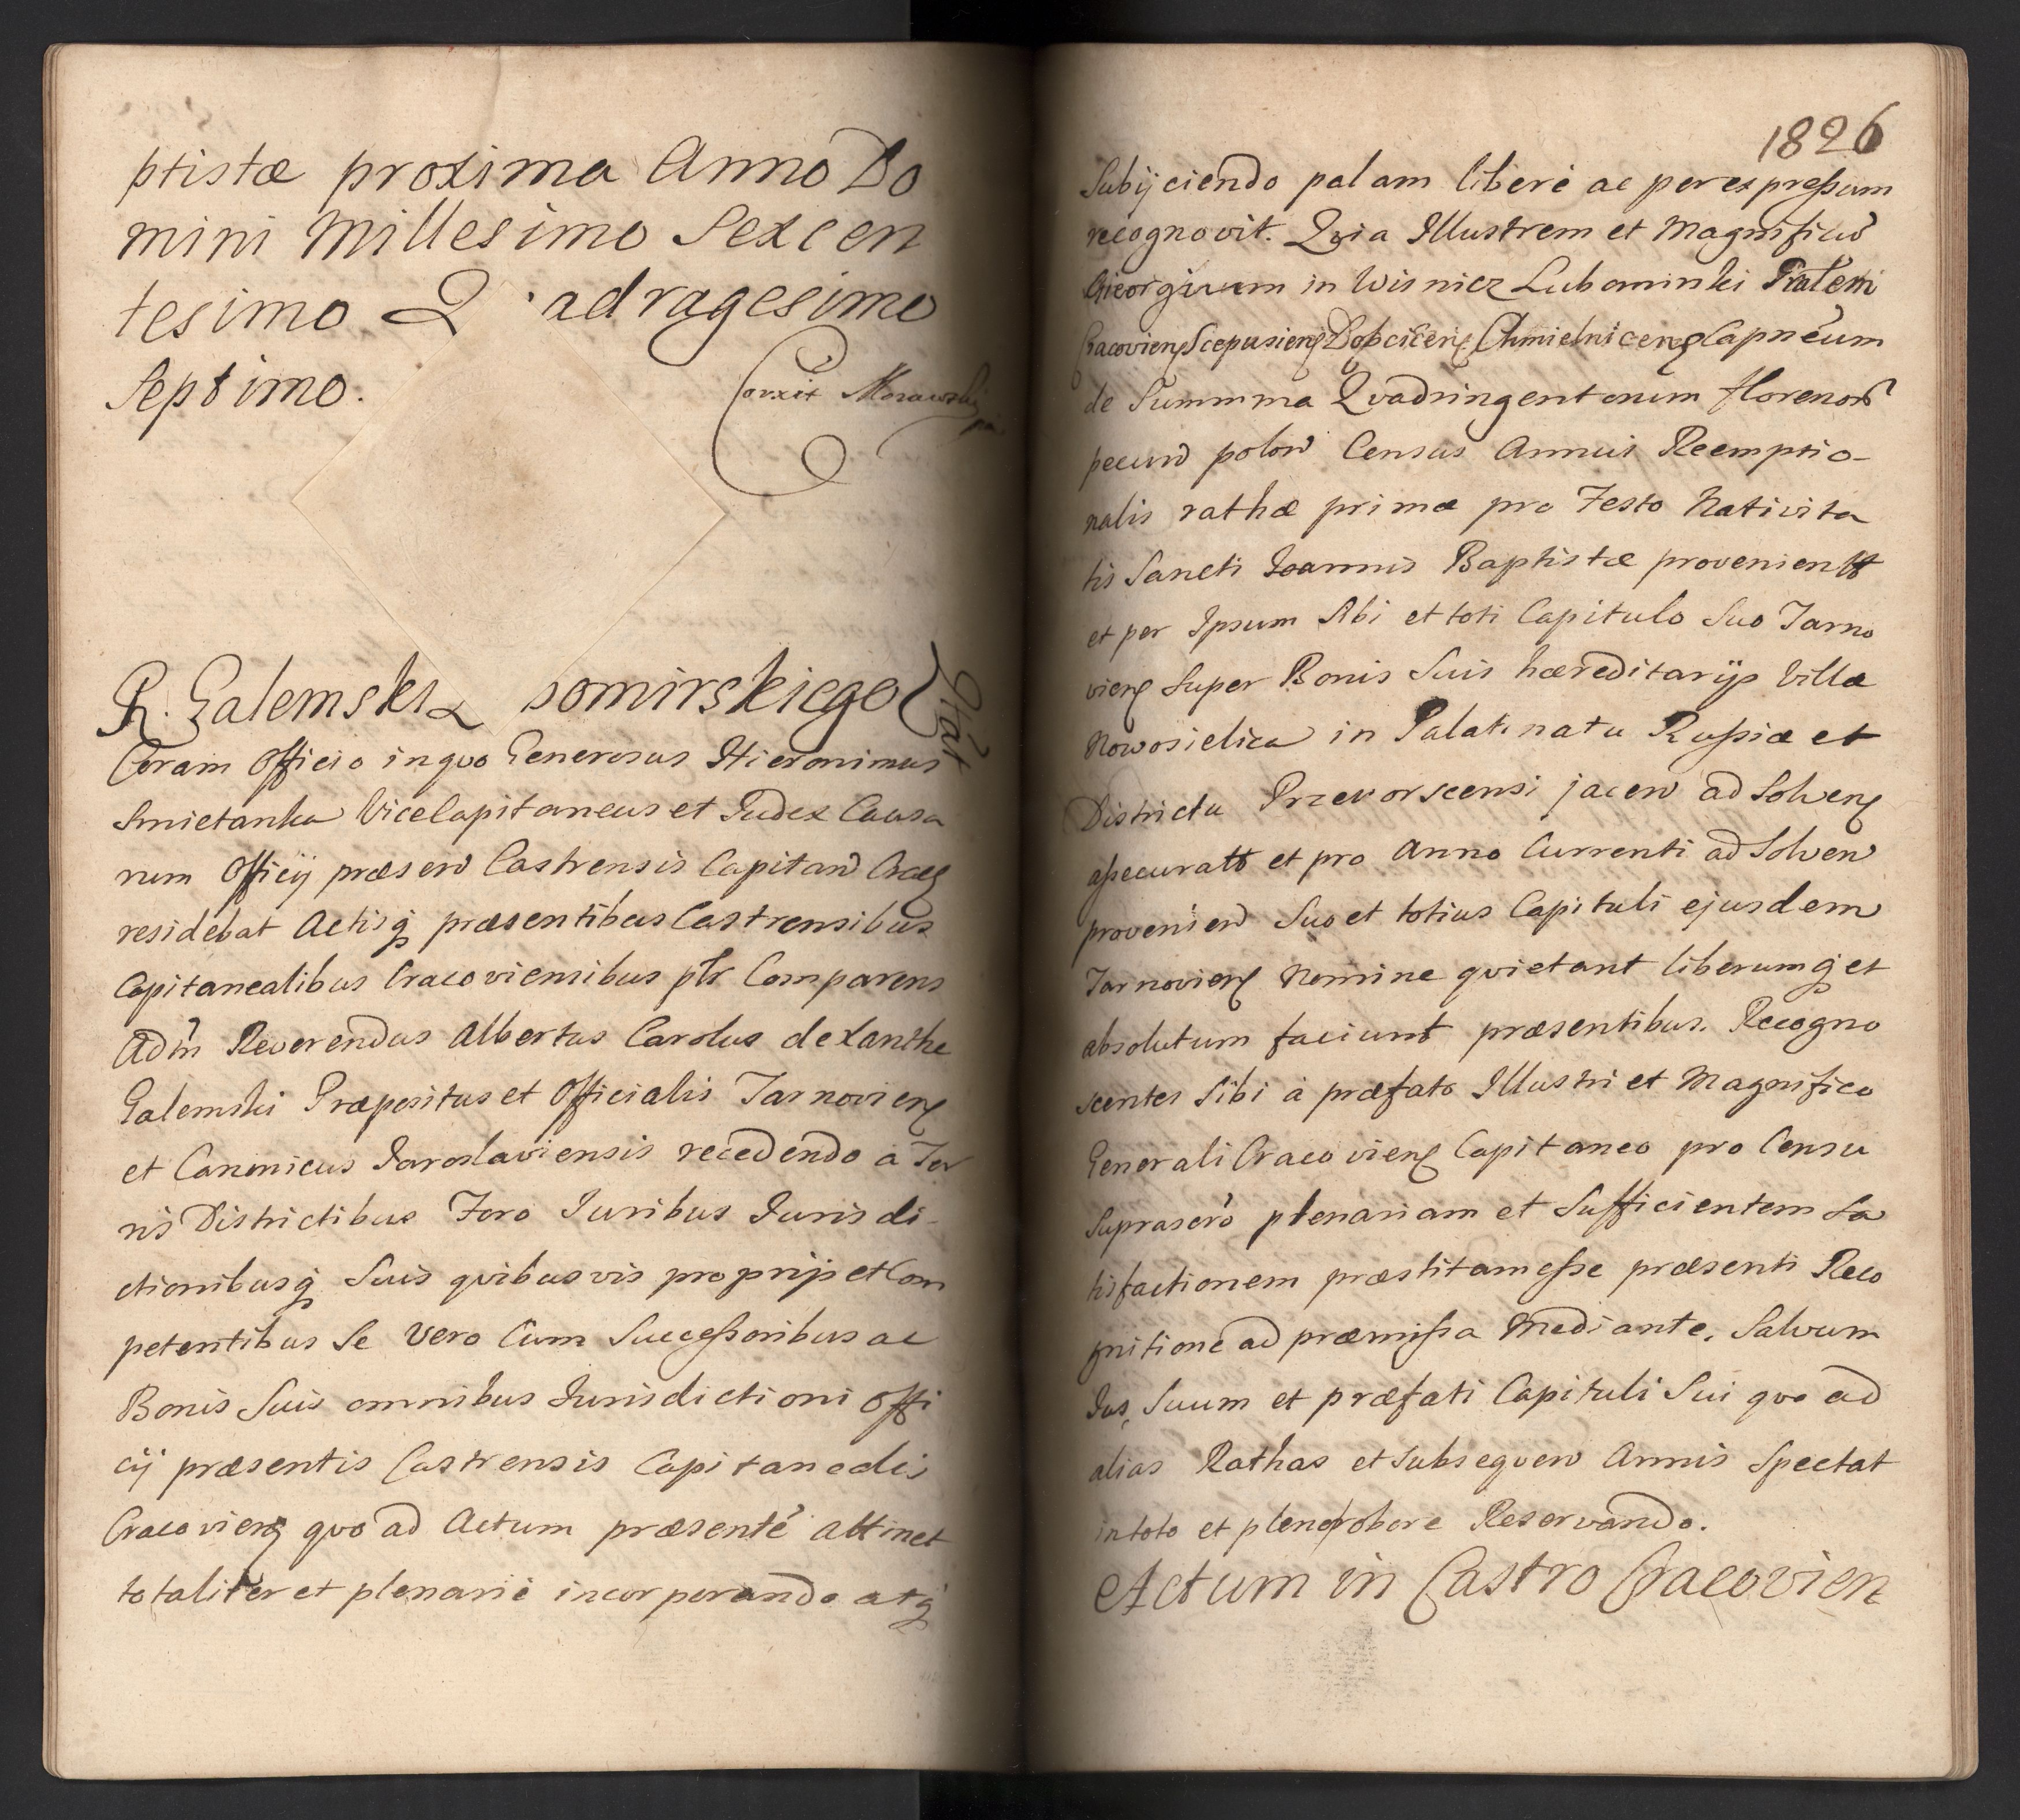 ptistæ proxima Anno Do
mini Millesimo Sexcen
tesimo Q adragesimo
Septimo.
Corexit Morawski
R. Galemski somirskiego
Coram Officio in quo Generosus Hieronimus
Smietanka ViceCapitaneus et Judex Causa
rum Officij præsen Castrensis Capitan Crac
residebat Actisq præsentibus Castrensibus
Capitanealibus Cracoviensibus plr Comparens
Adm Reverendus Albertus Carolus de Xanthe
Galemski Præpositus et Officialis Tarnovien
et Canonicus Jaroslaviensis recedendo a Ter
ris Districtibus Foro Juribus Jurisdi-
ctionibusq Suis quibusvis proprijs et Com
petentibus Se Vero Cum Successoribus ac
Bonis Suis omnibus Jurisdictioni Offi
cij præsentis Castrensis Capitanealis
Cracovien quo ad Actum præsente attinet
totaliter et plenarie incorporando atq
1826
Subijciendo palam libere ac per expressum
recognovit. Quia Illustrem et Magnificu
Georgium in Wisnicz Lubomirski
Cracovien Scepusien Dobcicen Chmielnicen Capneum
de Summma Quadringentorum florenor
pecun polon Census Annui Reemptio-
nalis rathæ primæ pro Festo Nativita
tis Sancti Joannis Baptistæ provenien
et per Ipsum Sibi et toti Capitulo Suo Tarno
vien Super Bonis Suis hæreditarijs Villa
Nowosielica in Palatinatu Russiæ et
Districtu Przevorscensi jacen ad Solven
assecurat et pro Anno Currenti ad Solven
provenien Suo et totius Capituli ejusdem
Tarnovien Nomine quietant liberumq et
absolutum faciunt præsentibus. Recogno
scentes Sibi à præfato Illustri et Magnifico
Generali Cracovien Capitaneo pro Censu
Suprascro plenariam et Sufficientem Sa
tisfactionem præstitam esse præsenti Reco
gnitione ad præmissa Mediante. Salvum
Jus Suum et præfati Capituli Sui quo ad
alias Rathas et Subsequen Annis Spectat
in toto et pleno robore Reservando.
Actum in Castro Cracovien